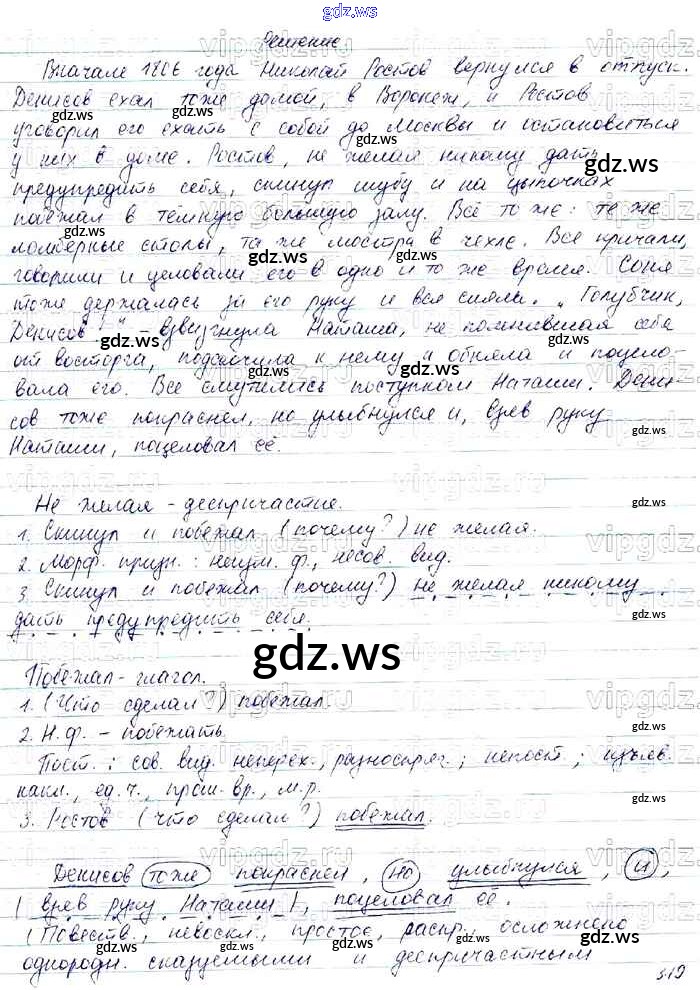 gdz.ws
Решение
Вначале 1806 года Николай Ростов вернулся в отпуск.
Денисов ехал тоже домой, в Воронеж, и Ростов
уговорил его ехать с собой до Москвы и остановиться
у них в доме. Ростов, не желая никому дать
предупредить себя, скинул шубу и на цыпочках
побежал в тёмную большую залу. Всё то же: те же
ломберные столы, та же люстра в чехле. Все кричали,
говорили и целовали его в одно и то же время. Соня
тоже держалась за его руку и вся сияла. „Голубчик,
Денисов!" - взвизгнула Наташа, не помнившая себя
от восторга, подскочила к нему и обняла и поцело-
вала его. Все смутились поступком Наташи. Дени-
сов тоже покраснел, но улыбнулся и, взяв руку
Наташи, поцеловал её.
Не желая - деепричастие.
1. Скинул и побежал (почему?) не желая.
2. Морф. призн.: неизм. ф., несов. вид.
3. Скинул и побежал (почему?) не желая никому
дать предупредить себя.
Побежал - глагол.
1. (Что сделал?) побежал.
2. Н.ф. - побежать.
Пост.: сов. вид, неперех., разноспряг.; непост.: изъяв.
накл., ед.ч., прош. вр., м.р.
3. Ростов (что сделал?) побежал.
Денисов тоже покраснел, но улыбнулся, и,
| взяв руку Наташи |, поцеловал её.
(Повеств., невоскл., простое, распр., осложнено
однородн. сказуемыми и деепричастным